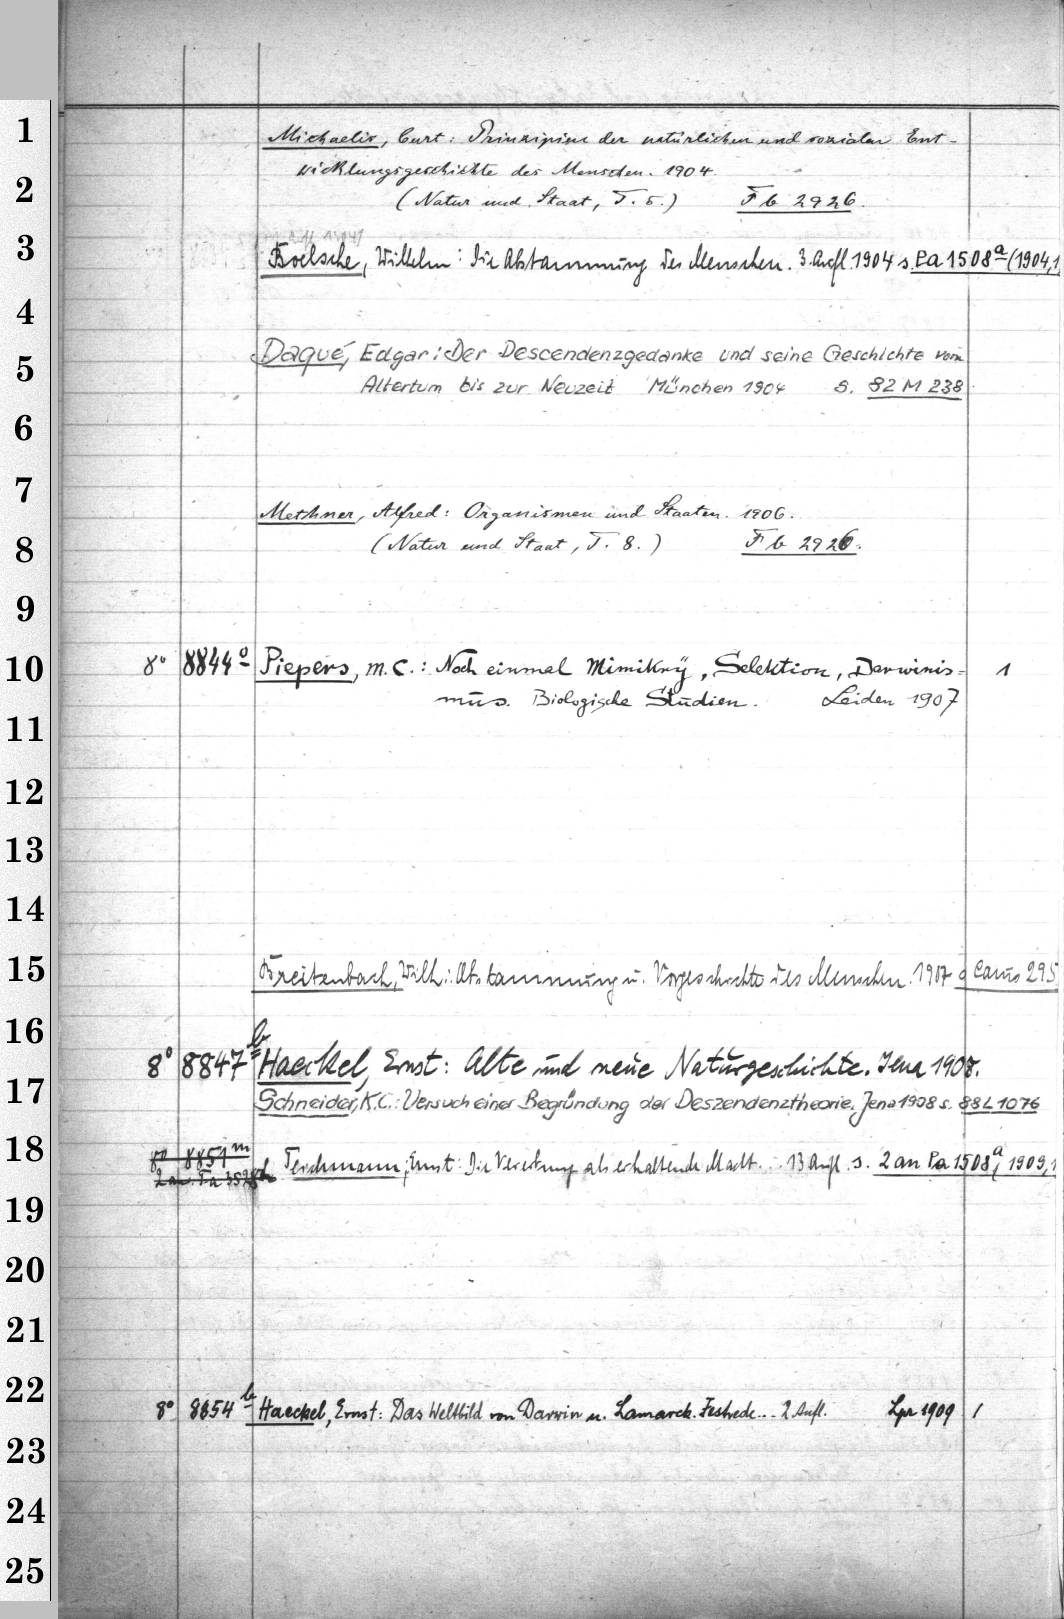 1
Michaelis, Curt: Prinzipien der natürlichen und sozialen Ent-
2
wicklungsgeschichte des Menschen. 1904.
(Natur und Staat, T. 5.) F b 2926.
3
Boelsche, Wilhelm: Die Abstammung des Menschen. 3. Aufl. 1904 s. Pa 1508a (1904,1
4
5
Daqué, Edgar: Der Descendenzgedanke und seine Geschichte vom
Altertum bis zur Neuzeit München 1904 s. 82 M 238
6
7
Methner, Alfred: Organismen und Staaten. 1906.
8
(Natur und Staat, T. 8.) F b 2926.
9
10
8° 8844o Piepers, M.C.: Noch einmal Mimikrÿ, Selektion, Darwinis= 1
mus. Biologische Studien. Leiden 1907
11
12
13
14
15
Breitenbach, Wilh.: Abstammung u. Vorgeschichte des Menschen. 1907 s Carus 295
16
8° 8847b Haeckel, Ernst: Alte und neue Naturgeschichte. Jena 1908.
17
Schneider, K.C.: Versuch einer Begründung der Deszendenztheorie. Jena 1908 s. 88 L 1076
18
8° 8851m
Teichmann, Ernst: Die Vererbung als erhaltende Macht... 13 Aufl. s. 2 an Pa 1508a, 1909,1
19
20
21
22
8° 8854b Haeckel, Ernst: Das Weltbild von Darwin u. Lamarck. Festrede... 2 Aufl. Lpz 1909 1
23
24
25